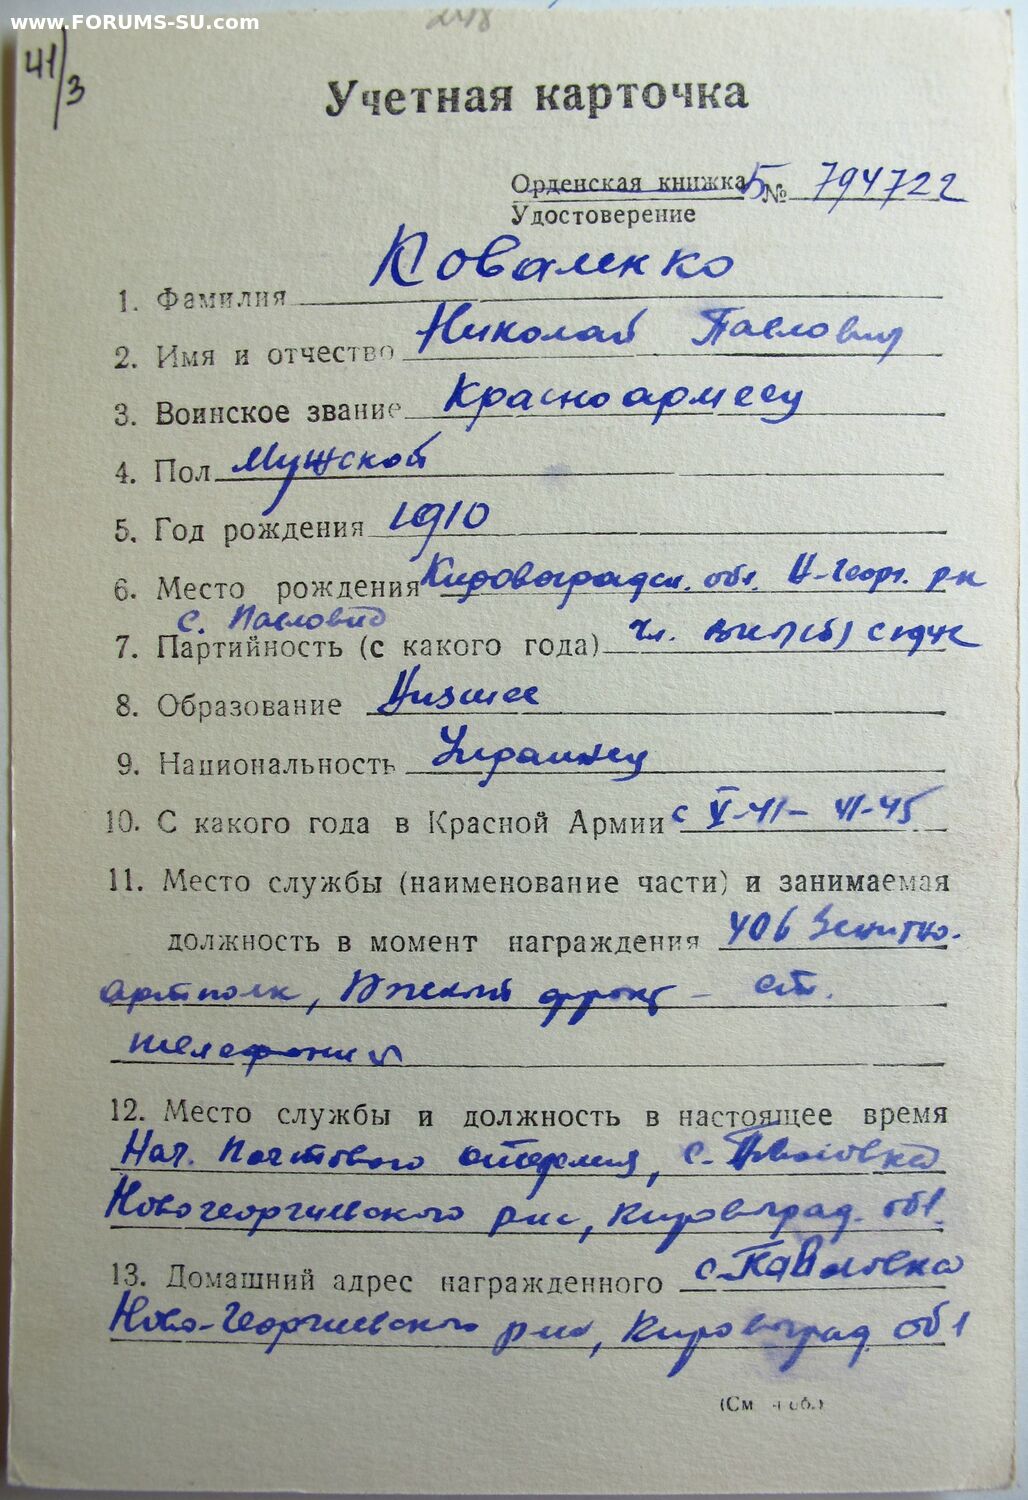 www.FORUMS-SU.com
41/3
Учетная карточка
Орденская книжка Б № 794722
Удостоверение
1. Фамилия Коваленко
2. Имя и отчество Николай Павлович
3. Воинское звание Красноармеец
4. Пол Мужской
5. Год рождения 1910
6. Место рождения Кировоградск. обл. Н-Георг. рн
с.
7. Партийность (с какого года) чл. ВКП(б) с
8. Образование Низшее
9. Национальность Украинец
10. С какого года в Красной Армии с V-41 – VI-45
11. Место службы (наименование части) и занимаемая
должность в момент награждения 406 Зенитно.
артполк, Южный фронт – ст.
телефонист
12. Место службы и должность в настоящее время
Нач. Почтового отделения, с. Павловка
Новогеоргиевского р-на, Кировоград. обл.
13. Домашний адрес награжденного с. Павловка
Ново-Георгиевского р-на, Кировоград обл
(См об.)